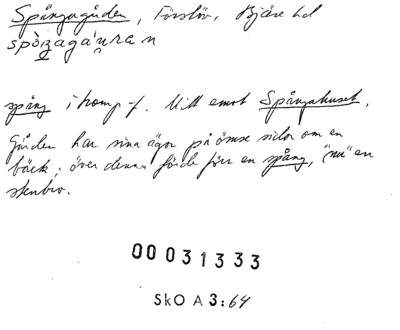 Spångagården, Förslöv, Bjäre hd
spång i komp f. Mitt emot Spångahuset.
Gården har sina ägor på ömse sidor om en
bäck; över denna förde förr en spång, "nu" en
stenbro.
00031333
SkO A 3:64